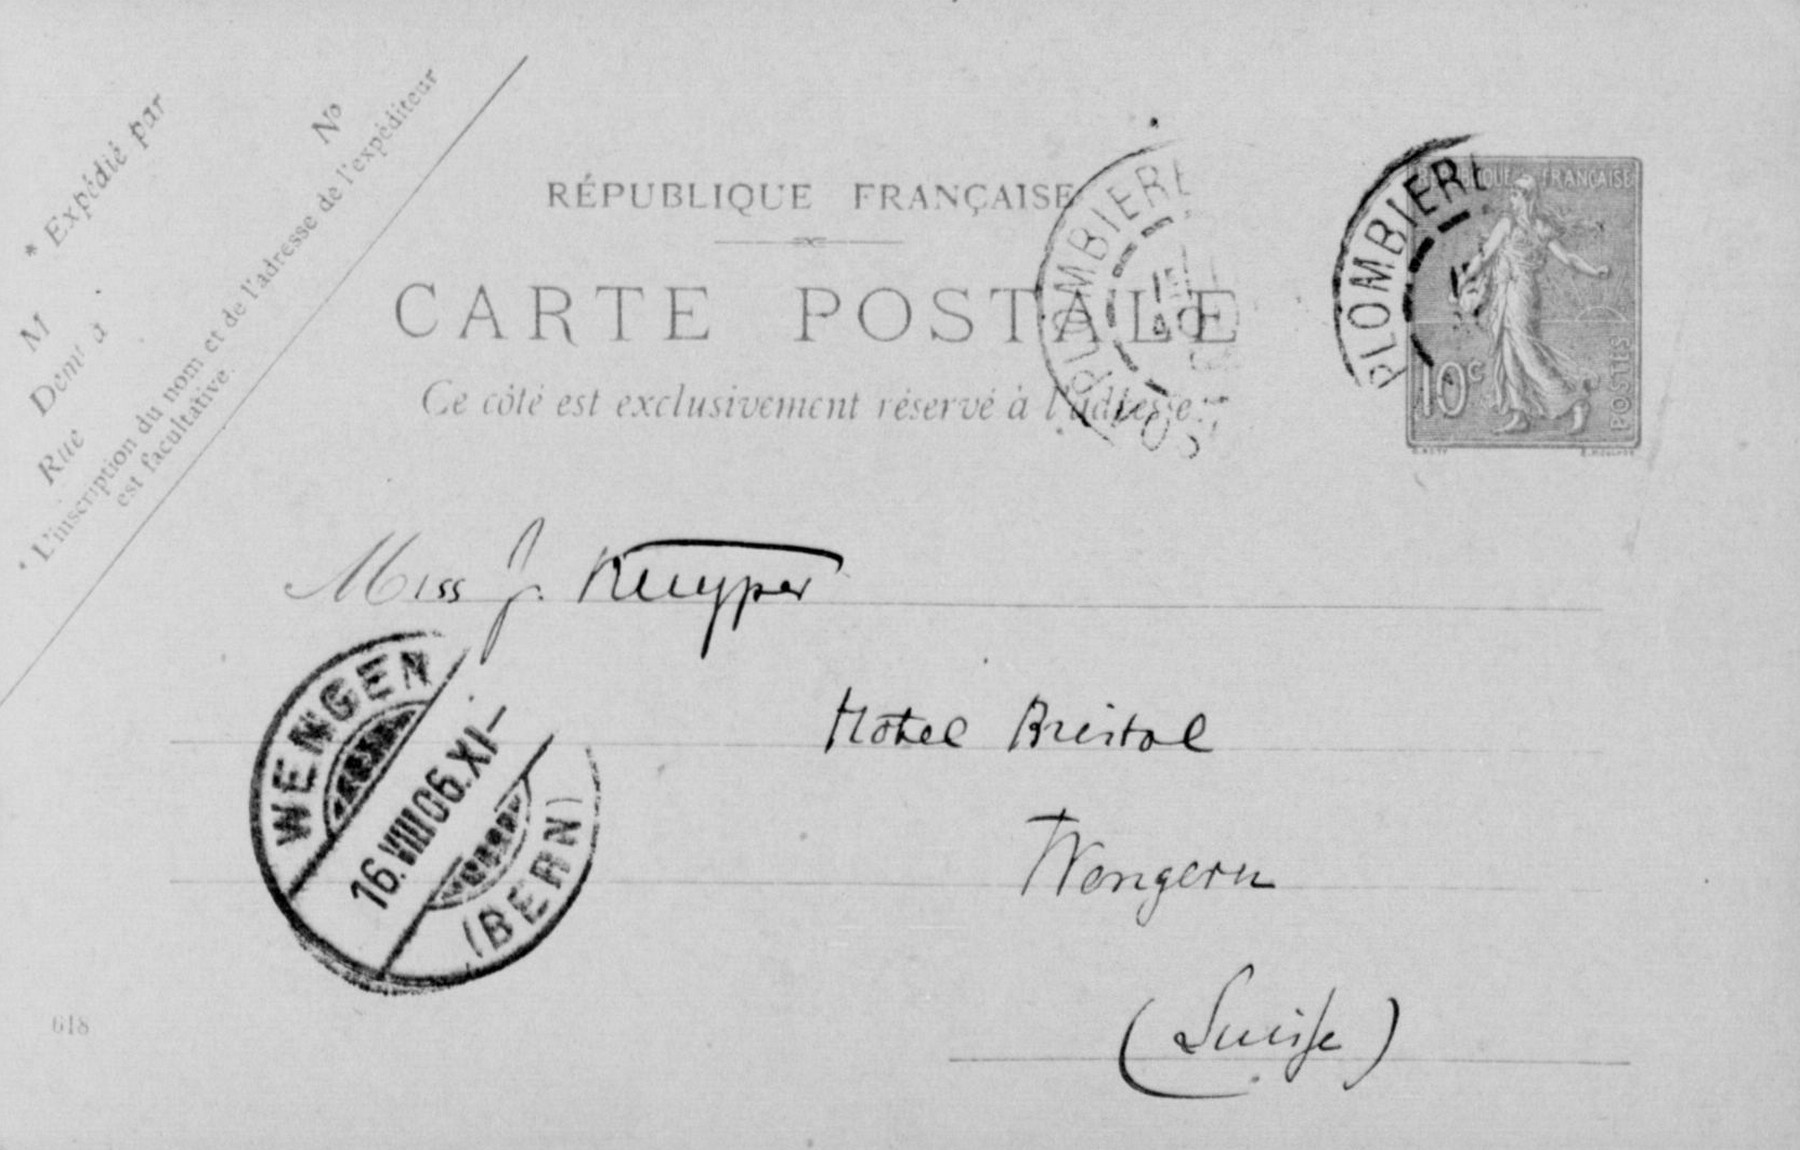 * Expédié par
M
Dem<sup>t</sup> à
Rue
N°
* L'inscription du nom et de l'adresse de l'expéditeur
est facultative.
RÉPUBLIQUE FRANÇAISE
CARTE POSTALE
Ce côté est exclusivement réservé à l'adresse
PLOMBIERE
PLOMBIERE
RÉPUBLIQUE FRANÇAISE
10c
POSTES
Miss J. Kuyper
Hôtel Bristol
Wengern
(Suisse)
WENGEN
16.VIII06.XI-
(BERN)
618